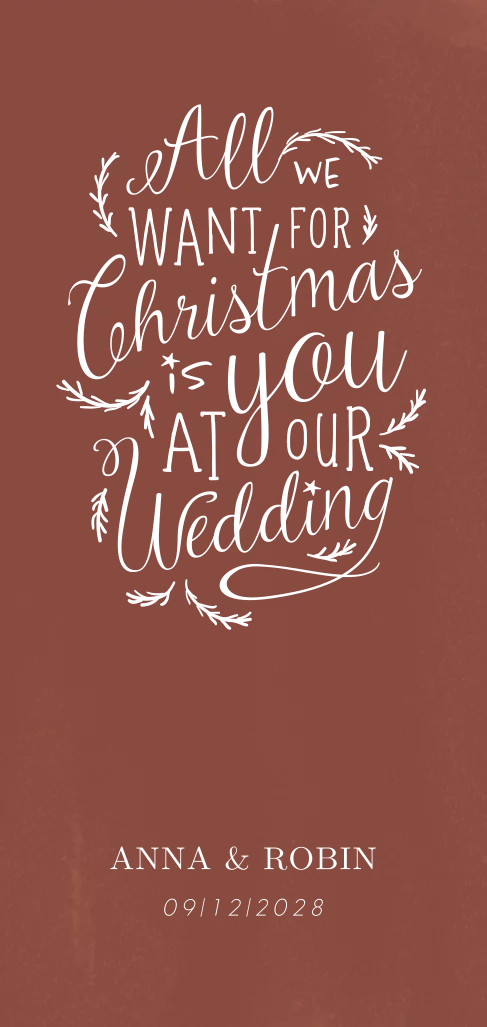 All WE
WANT FOR
Christmas
is you
AT OUR
Wedding
ANNA & ROBIN
09|12|2028